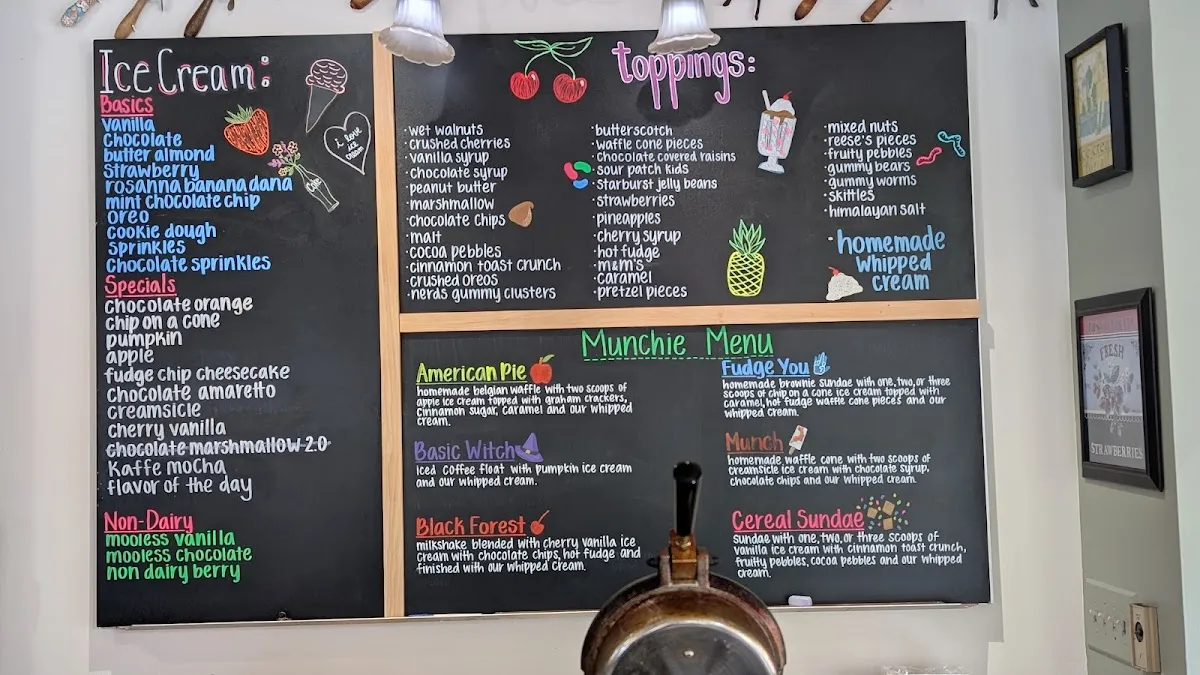 Ice Cream:
Basics
vanilla
chocolate
butter almond
strawberry
rosanna banana dana
mint chocolate chip
oreo
cookie dough
sprinkles
chocolate sprinkles
Specials
chocolate orange
chip on a cone
pumpkin
apple
fudge chip cheesecake
chocolate amaretto
creamsicle
cherry vanilla
chocolate marshmallow 2.0
Kaffe mocha
flavor of the day
Non-Dairy
mooless vanilla
mooless chocolate
non dairy berry
i love
ice
cream
toppings:
·wet walnuts
·crushed cherries
·vanilla syrup
·chocolate syrup
·peanut butter
·marshmallow
·chocolate chips
·malt
·cocoa pebbles
·cinnamon toast crunch
·crushed oreos
·nerds gummy clusters
·butterscotch
·waffle cone pieces
·chocolate covered raisins
·sour patch kids
·starburst jelly beans
·strawberries
·pineapples
·cherry syrup
·hot fudge
·m&m's
·caramel
·pretzel pieces
·mixed nuts
·reese's pieces
·fruity pebbles
·gummy bears
·gummy worms
·skittles
·himalayan salt
·homemade
whipped
cream
Munchie Menu
American Pie
homemade belgian waffle with two scoops of
apple ice cream topped with graham crackers,
cinnamon sugar, caramel and our whipped
cream.
Basic Witch
iced coffee float with pumpkin ice cream
and our whipped cream.
Black Forest
milkshake blended with cherry vanilla ice
cream with chocolate chips, hot fudge and
finished with our whipped cream.
Fudge You
homemade brownie sundae with one, two, or three
scoops of chip on a cone ice cream topped with
caramel, hot fudge waffle cone pieces and our
whipped cream.
Munch
homemade waffle cone with two scoops of
creamsicle ice cream with chocolate syrup,
chocolate chips and our whipped cream.
Cereal Sundae
sundae with one, two, or three scoops of
vanilla ice cream with cinnamon toast crunch,
fruitty pebbles, cocoa pebbles and our whipped
cream.
FRESH
STRAWBERRIES